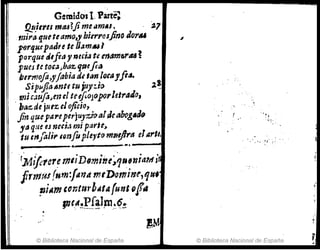 Gemidos I. Parte,
Quieres mas? si me amas. 27
mira que te amo, y bierros fino doras
porque padre te llamas!
porque de fea y necia te enamoras?
pues te toca, haz que sea
hermosa, y sabia de tan loca y fea.
Si pusia ante tu juyzio 28
mi causa, en el te escojo por letrado,
haz de juez el oficio,
sin que pare perjuyzio al de abogado
ya que es necia mi parte,
tu en salir con su pleyto muestra el arte.
Miserere mei Domine, quoniam in
firmus sum: sana me Domine, quo
niam conturbata sunt ossa
mea. Psalm. 6.
© Biblioteca Nacional de España
© Biblioteca Nacional de España